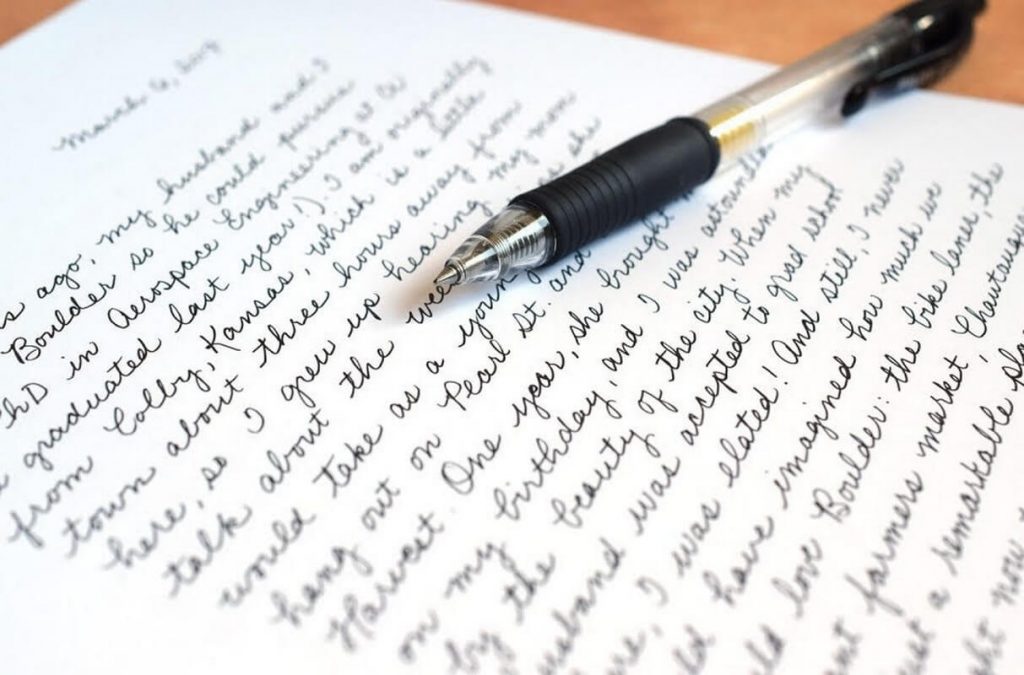 March 6,
ago, my husband and I
Boulder so he could pursue
PhD in Aerospace Engineering at CU
graduated last year!). I am originally
from Colby, Kansas, which is a little
town about three hours away from
here, so I grew up hearing my mom
talk about the she
would take as a young
hang out on Pearl St. and
Harvest One year, she brought
on my birthday, and I was astounded
by the beauty of the city. When my
husband was accepted to grad school
I was elated! And still, I never
have imagined how much we
love Boulder: the bike lanes, the
farmers market, Chautauqua
a remarkable
now